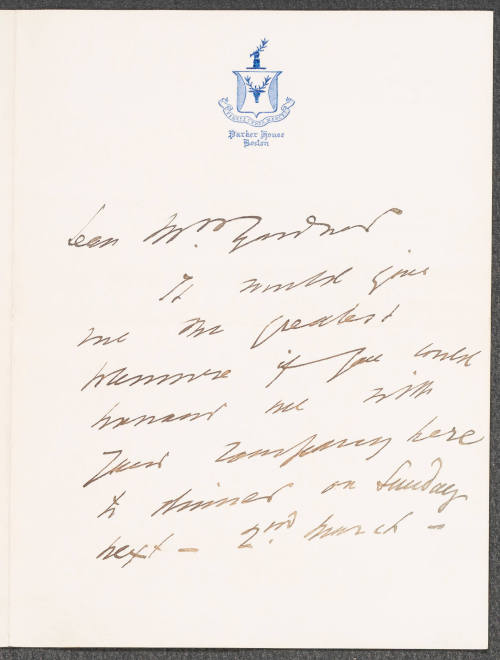 Parker House
Boston
Dear Mrs Gardner
It would give
me the greatest
pleasure if you could
honour me with
your company here
to dinner on Sunday
next – 2nd March –